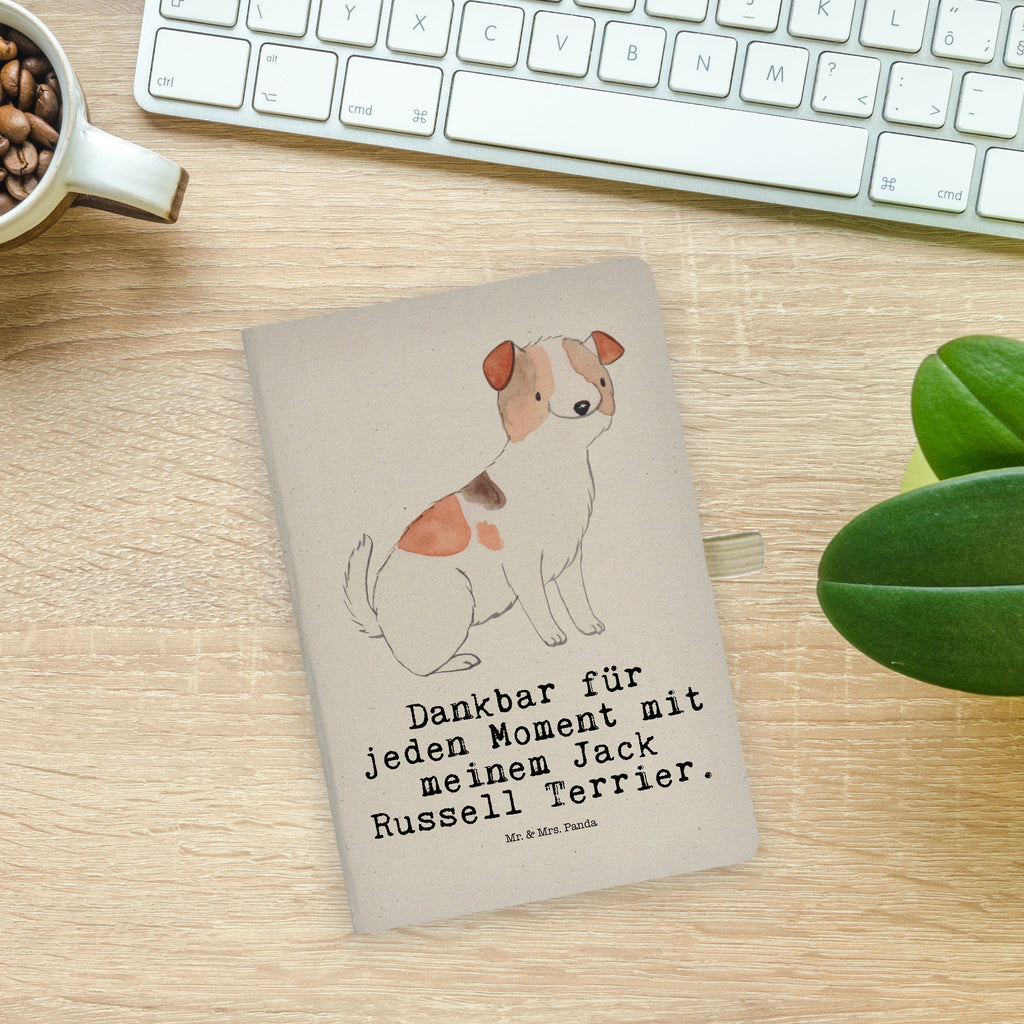 Y X C V B N M K L
ctrl alt cmd ⌘ ⌘ cmd
Dankbar für
jeden Moment mit
meinem Jack
Russell Terrier.
Mr. & Mrs. Panda